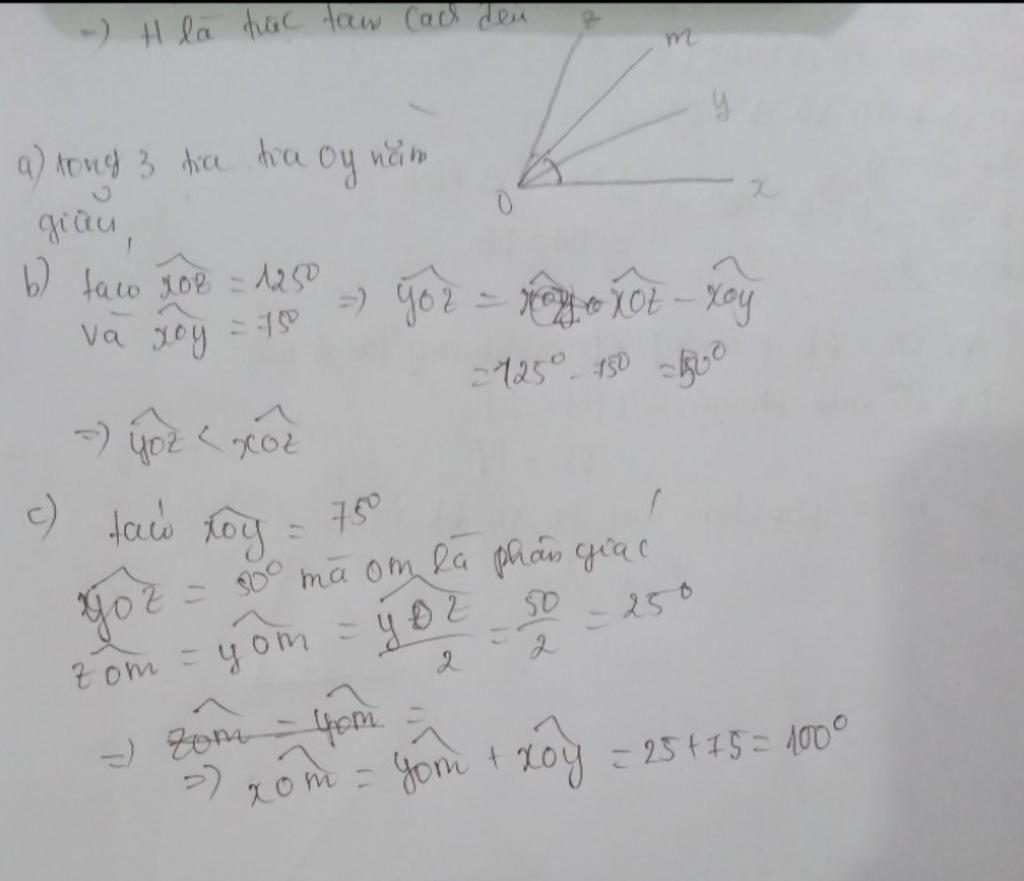 =) H là trực tâm cách đều
z
m
y
x
O
a) trong 3 tia tia Oy nằm
giữa
b) ta có xOz = 125°
và xOy = 75°
=) yOz = xOz - xOy
= 125° - 75° = 50°
=) yOz < xOz
c) ta có xOy = 75°
yOz = 50° mà Om là phân giác
zOm = yOm = yOz/2 = 50/2 = 25°
=) zOm = yOm =
=) xOm = yOm + xOy = 25 + 75 = 100°